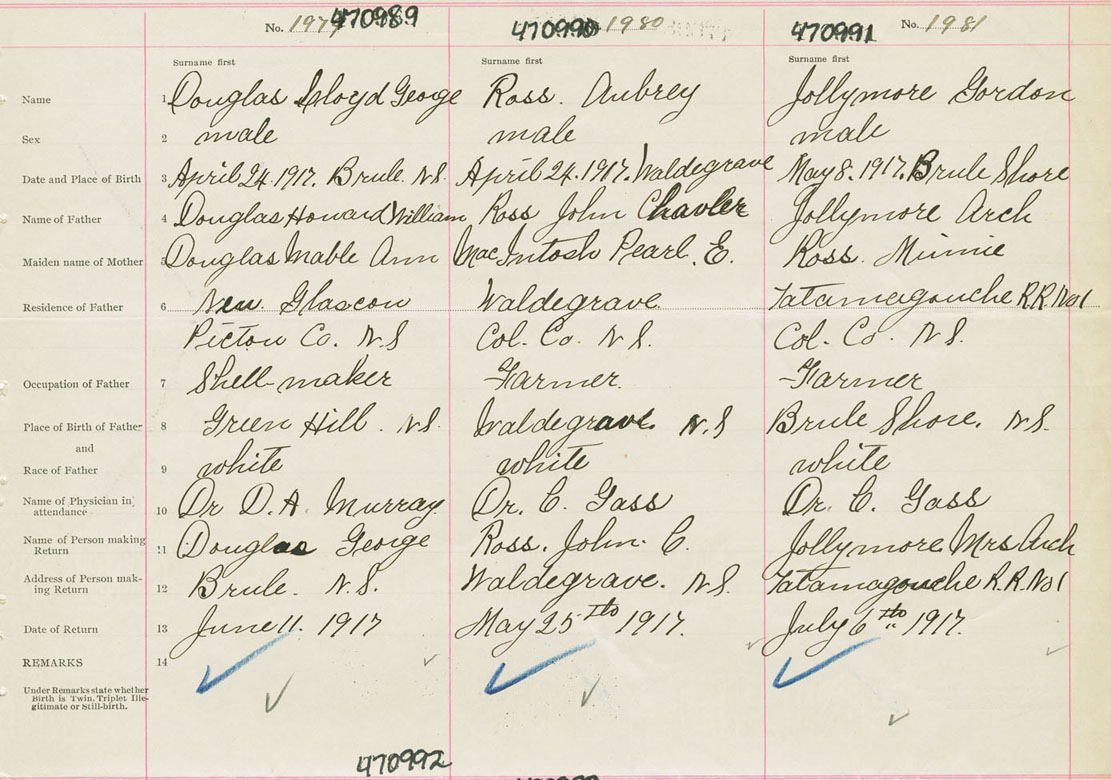 No. 1979 470989 470990 1980 470991 No. 1981
Surname first Surname first Surname first
Name 1 Douglas Lloyd George Ross. Aubrey Jollymore Gordon
Sex 2 male male male
Date and Place of Birth 3 April 24. 1917. Brule. N.S. April 24. 1917. Waldegrave May 8. 1917. Brule Shore
Name of Father 4 Douglas Howard William Ross John Chavler Jollymore Arch
Maiden name of Mother 5 Douglas Mable Ann MacIntosh Pearl. E. Ross. Minnie
Residence of Father 6 New Glascow Waldegrave Tatamagouche R.R. No 1
Pictou Co. N.S Col. Co. N.S. Col. Co. N.S.
Occupation of Father 7 Shell-maker Farmer. Farmer
Place of Birth of Father 8 Green Hill. N.S. Waldegrave. N.S Brule Shore. N.S.
and
Race of Father 9 white white white
Name of Physician in attendance 10 Dr D. A Murray Dr. C. Gass Dr. C. Gass
Name of Person making Return 11 Douglas George Ross. John. C. Jollymore Mrs Arch
Address of Person making Return 12 Brule. N.S. Waldegrave. N.S Tatamagouche R.R. No 1
Date of Return 13 June 11. 1917 May 25 1917. July 6 1917.
REMARKS 14
Under Remarks state whether
Birth is Twin, Triplet Ille-
gitimate or Still-birth.
470992